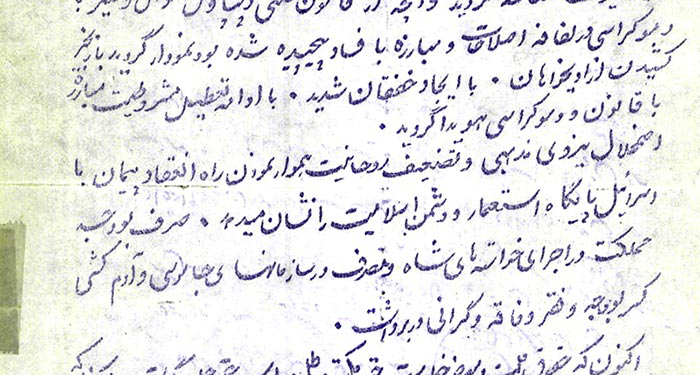 دموکراسی در لفافه اصلاحات و مبارزه با فساد پیچیده شده بود نمودار گردید. با زنجیر
کشیدن آزادیخواهان ۰ با ایجاد خفقان شدید ۰ با ادامه تعطیل مشروطیت مبارزه
با قانون و دموکراسی هویدا گردید ۰
اضمحلال نیروی مذهبی و تضعیف روحانیت هموار نمودن راه انعقاد پیمان با
اسرائیل پایگاه استعمار و دشمن اسلامیت را نشان میدهد ۰ صرف بودجه
مملکت در اجرای خواسته های شاه و مصرف در سازمانهای جاسوسی و آدم کشی
کسر بودجه و فقر و فاقه و گرانی در برداشت ۰
اکنون که حقوق